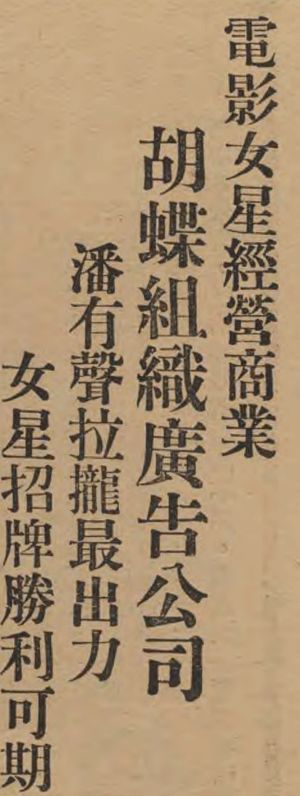 電影女星經營商業
胡蝶組織廣告公司
潘有聲拉攏最出力
女星招牌勝利可期